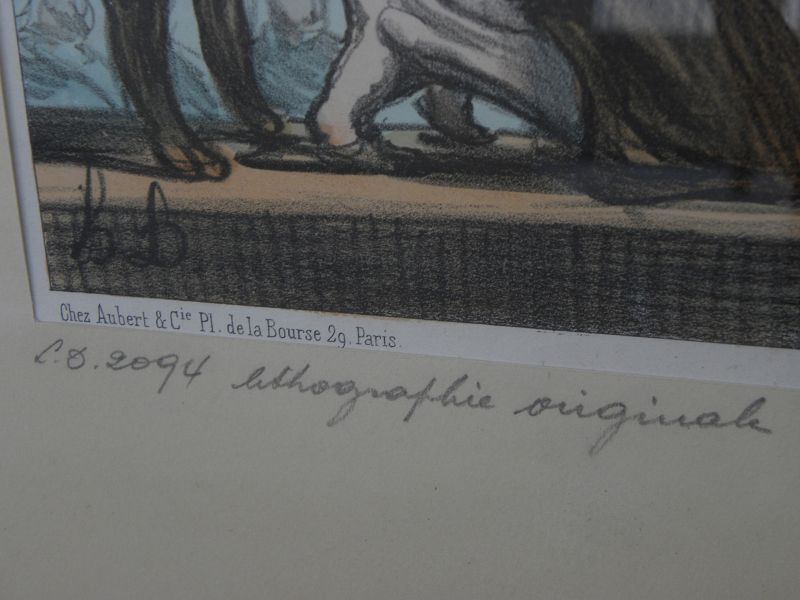 h D
Chez Aubert & Cie Pl. de la Bourse 29. Paris.
L.D. 2094 lithographie originale